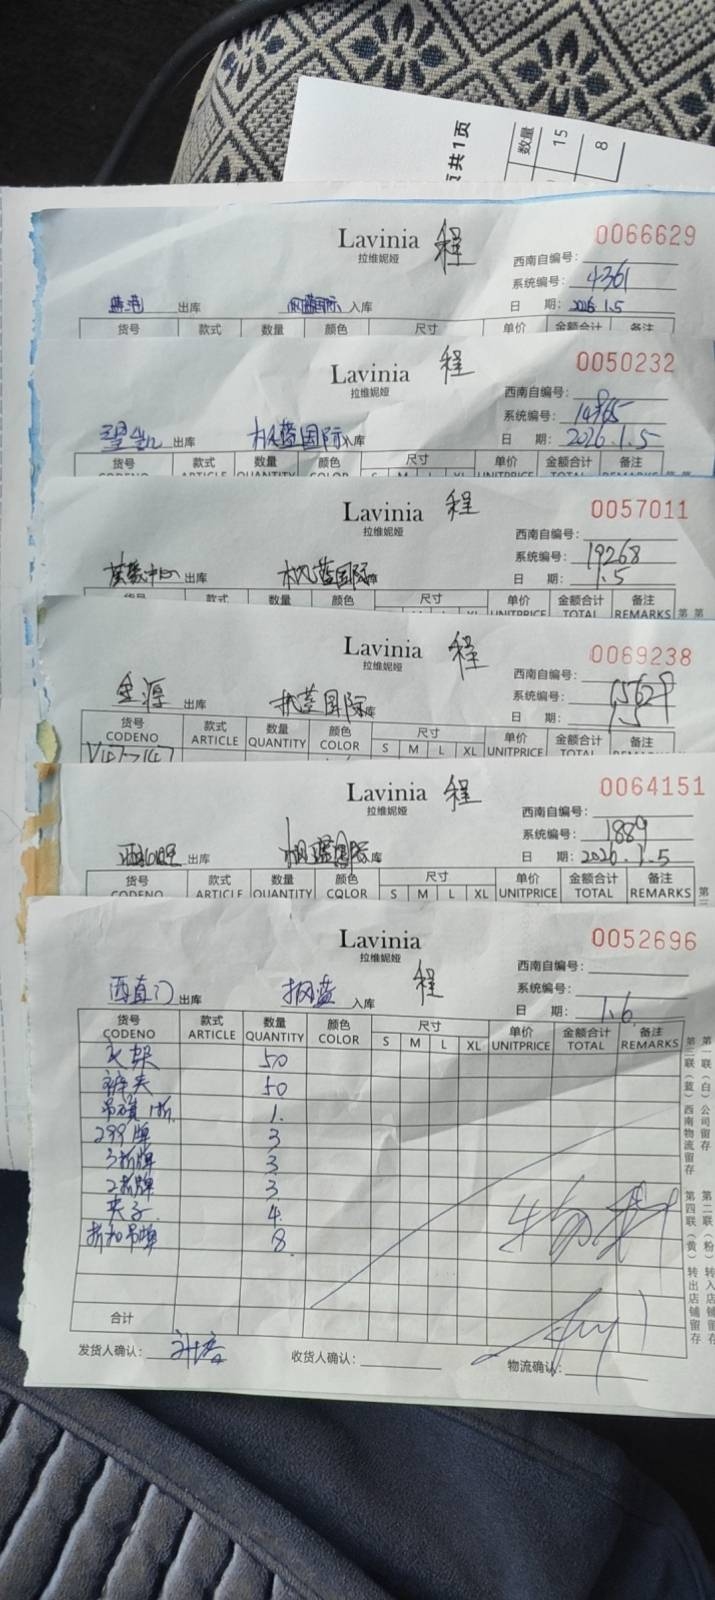 页共1页
数量
15
8
Lavinia 程 0066629
拉维妮娅
西南自编号:
系统编号: 4361
出库 枫蓝国际 入库 日 期: 2026.1.5
货号 款式 数量 颜色 尺寸 单价 金额合计 备注
Lavinia 程 0050232
拉维妮娅
西南自编号:
系统编号: 14865
望京 出库 枫蓝国际 入库 日 期: 2026.1.5
货号 款式 数量 颜色 尺寸 单价 金额合计 备注
CODENO ARTICLE QUANTITY COLOR S M L XL UNITPRICE TOTAL REMARKS
Lavinia 程 0057011
拉维妮娅
西南自编号:
系统编号: 19268
出库 枫蓝国际 库 日 期: 1.5
货号 款式 数量 颜色 尺寸 单价 金额合计 备注
UNITPRICE TOTAL REMARKS
Lavinia 程 0069238
拉维妮娅
西南自编号:
系统编号: 15629
金源 出库 枫蓝国际 库 日 期: 1.5
货号 款式 数量 颜色 尺寸 单价 金额合计 备注
CODENO ARTICLE QUANTITY COLOR S M L XL UNITPRICE TOTAL REMARKS
Lavinia 程 0064151
拉维妮娅
西南自编号:
系统编号: 1889
出库 枫蓝国际 库 日 期: 2026.1.5
货号 款式 数量 颜色 尺寸 单价 金额合计 备注
CODENO ARTICLE QUANTITY COLOR S M L XL UNITPRICE TOTAL REMARKS
Lavinia 程 0052696
拉维妮娅
西南自编号:
系统编号:
西直门 出库 枫蓝 入库 日 期: 1.6
货号 款式 数量 颜色 尺寸 单价 金额合计 备注
CODENO ARTICLE QUANTITY COLOR S M L XL UNITPRICE TOTAL REMARKS
衣架 50
裤夹 50
吊旗1折 1
299牌 3
3折牌 3
2折牌 3
夹子 4
折扣吊牌 8
合计
发货人确认: 收货人确认: 物流确认:
第一联(白)公司留存
第二联(粉)转入店铺留存
第三联(蓝)西南物流留存
第四联(黄)转出店铺留存